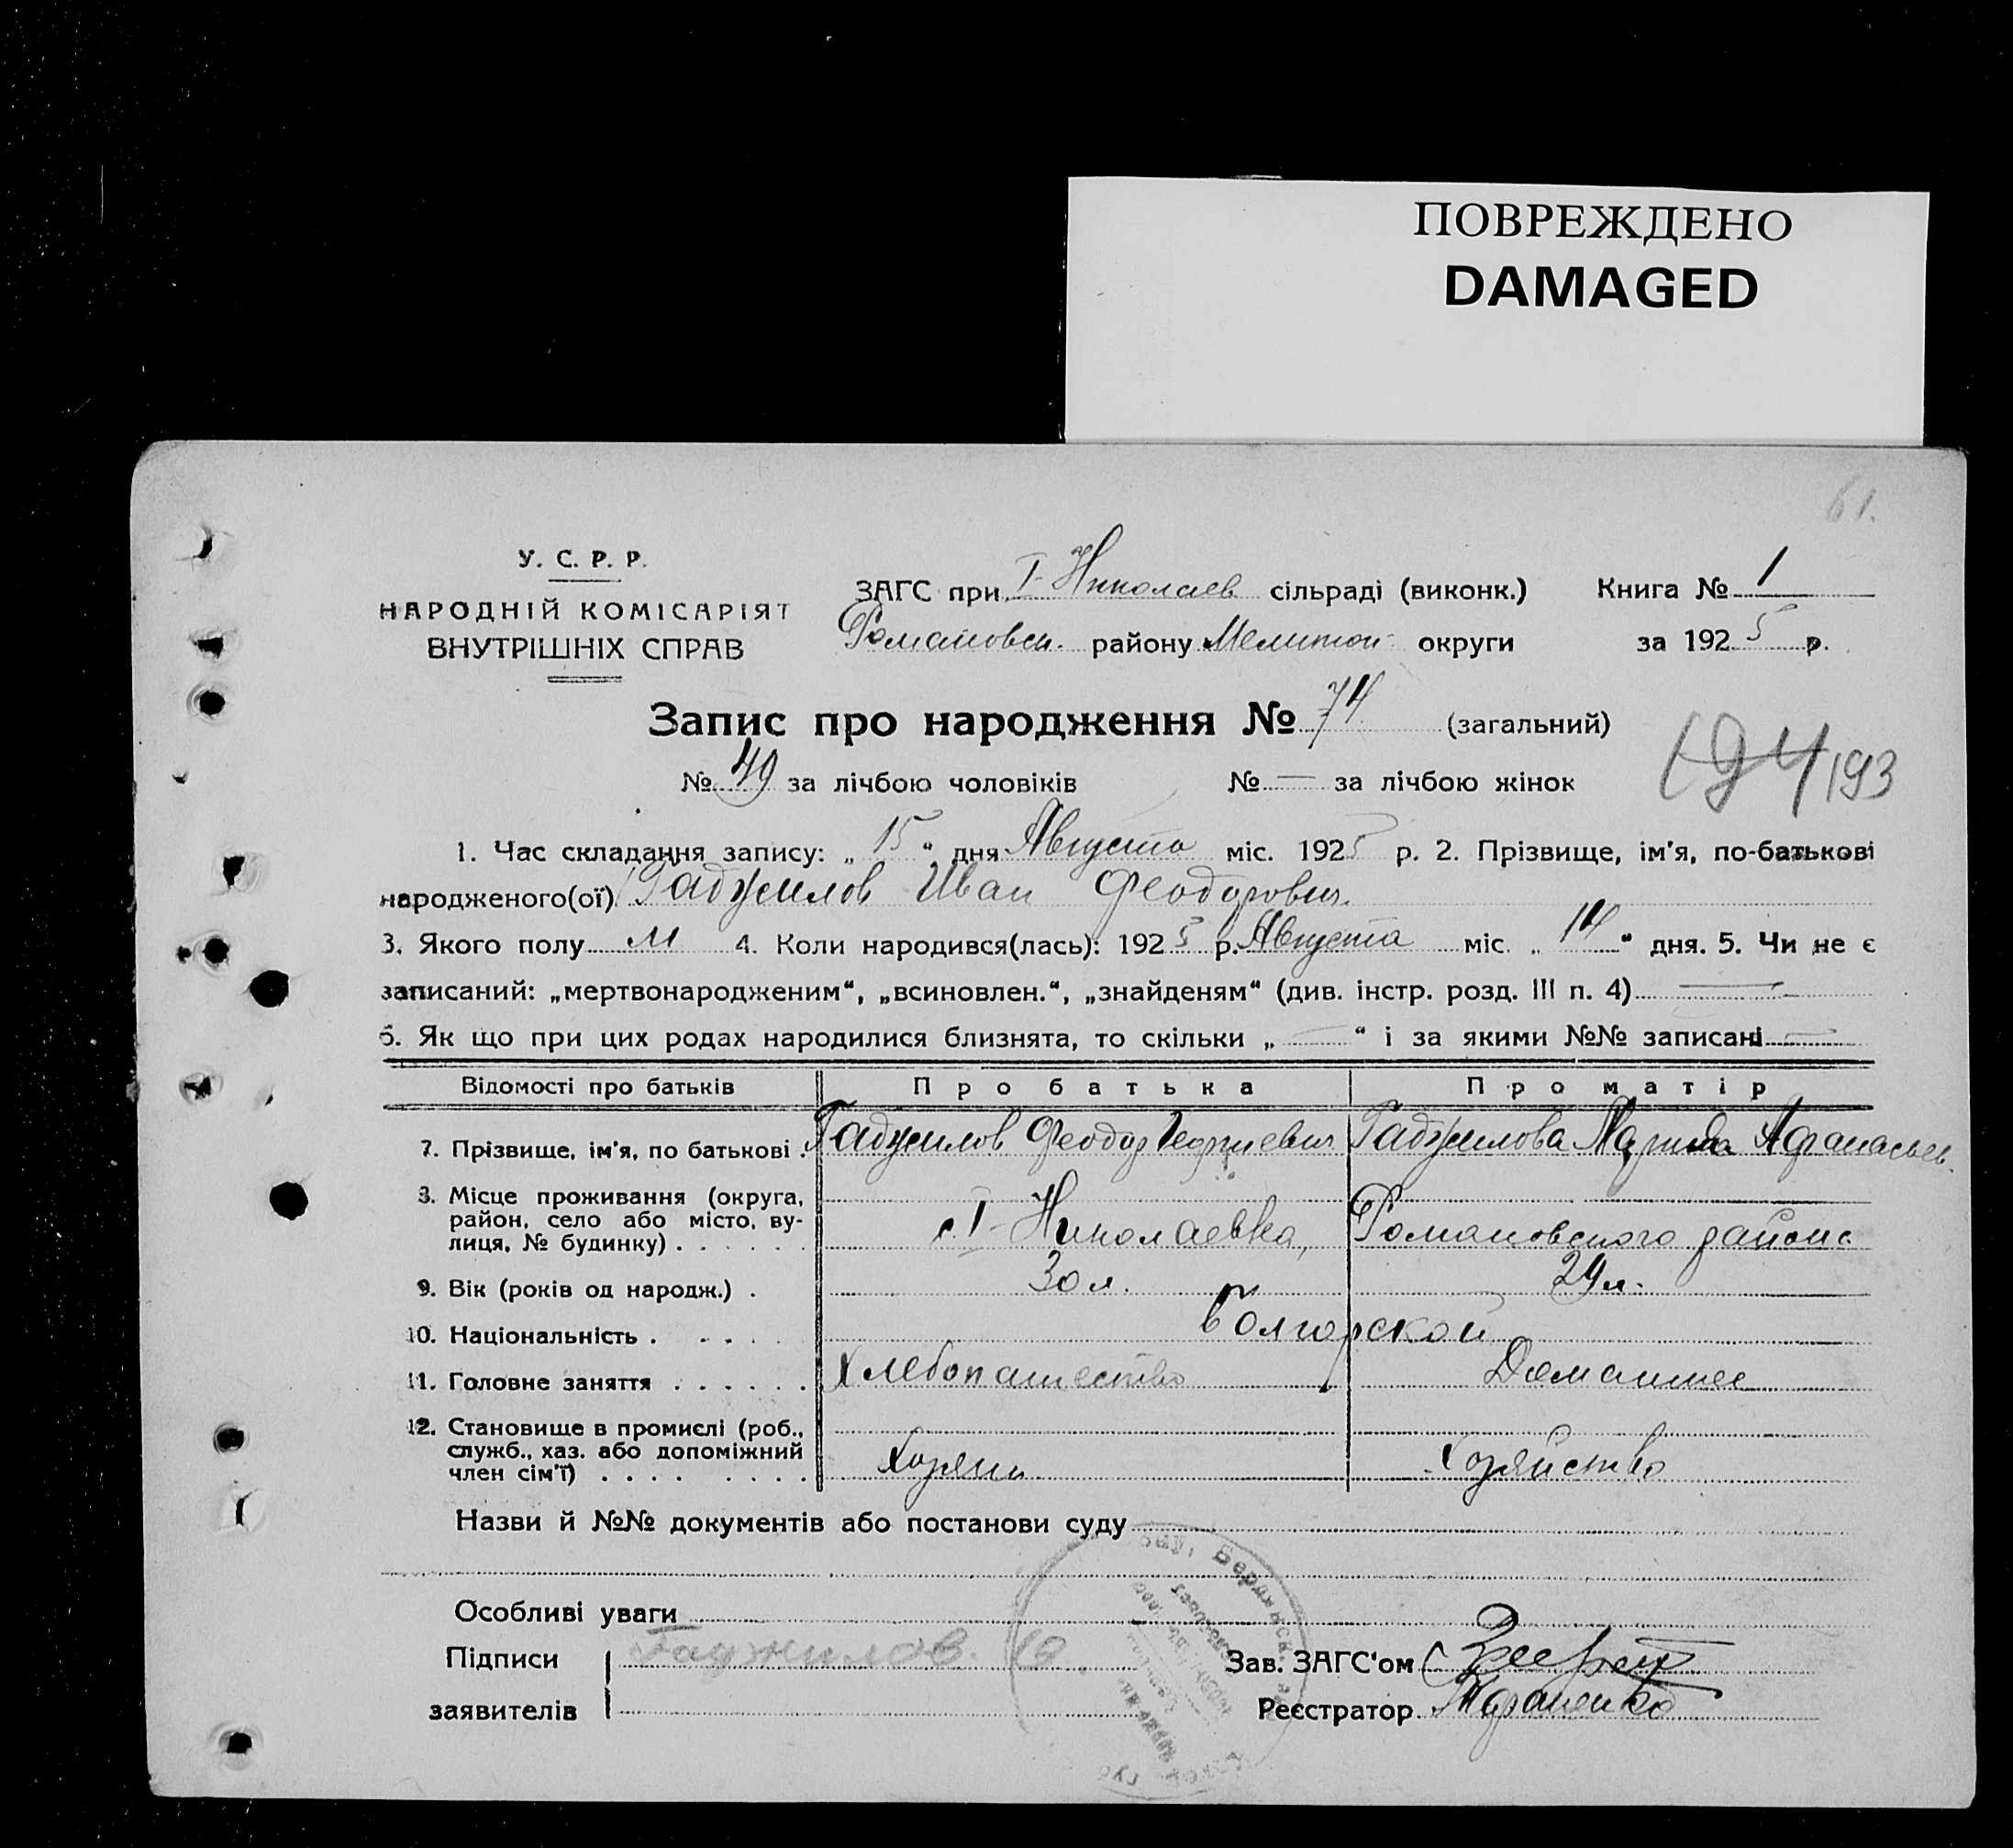 ПОВРЕЖДЕНО
DAMAGED
61.
У. С. Р. Р.
НАРОДНІЙ КОМІСАРІЯТ
ВНУТРІШНІХ СПРАВ
ЗАГС при I-Николаев сільраді (виконк.) Книга № 1
Романовск. району Мелитоп округи за 1925 р.
Запис про народження № 74 (загальний)
№ 49 за лічбою чоловіків № — за лічбою жінок
194 193
1. Час складання запису: „ 15 “ дня Августа міс. 1925 р. 2. Прізвище, ім'я, по-батькові
народженого(ої) Гаджилов Иван Феодорович.
3. Якого полу м 4. Коли народився(лась): 1925 р. Августа міс. „ 14 “ дня. 5. Чи не є
записаний: „мертвонародженим“, „всиновлен.“, „знайденям“ (див. інстр. розд. III п. 4) —
6. Як що при цих родах народилися близнята, то скільки „ — “ і за якими №№ записані —
Відомості про батьків Про батька Про матір
7. Прізвище, ім'я, по батькові . Гаджилов Феодор Георгиевич Гаджилова Афанасьев.
8. Місце проживання (округа,
район, село або місто, ву-
лиця, № будинку) . . . . . . с. I-Николаевка, Романовского района
9. Вік (років од народж.) . 30 л. 29 л.
10. Національність . . . . . болгарской
11. Головне заняття . . . . . . Хлебопашество Домашнее
12. Становище в промислі (роб.,
служб., хаз. або допоміжний
член сім'ї) . . . . . . . . Хозяин Хозяйство
Назви й №№ документів або постанови суду
Особливі уваги
Підписи Гаджилов. Ю. Зав. ЗАГС'ом
заявителів Реєстратор Тараненко